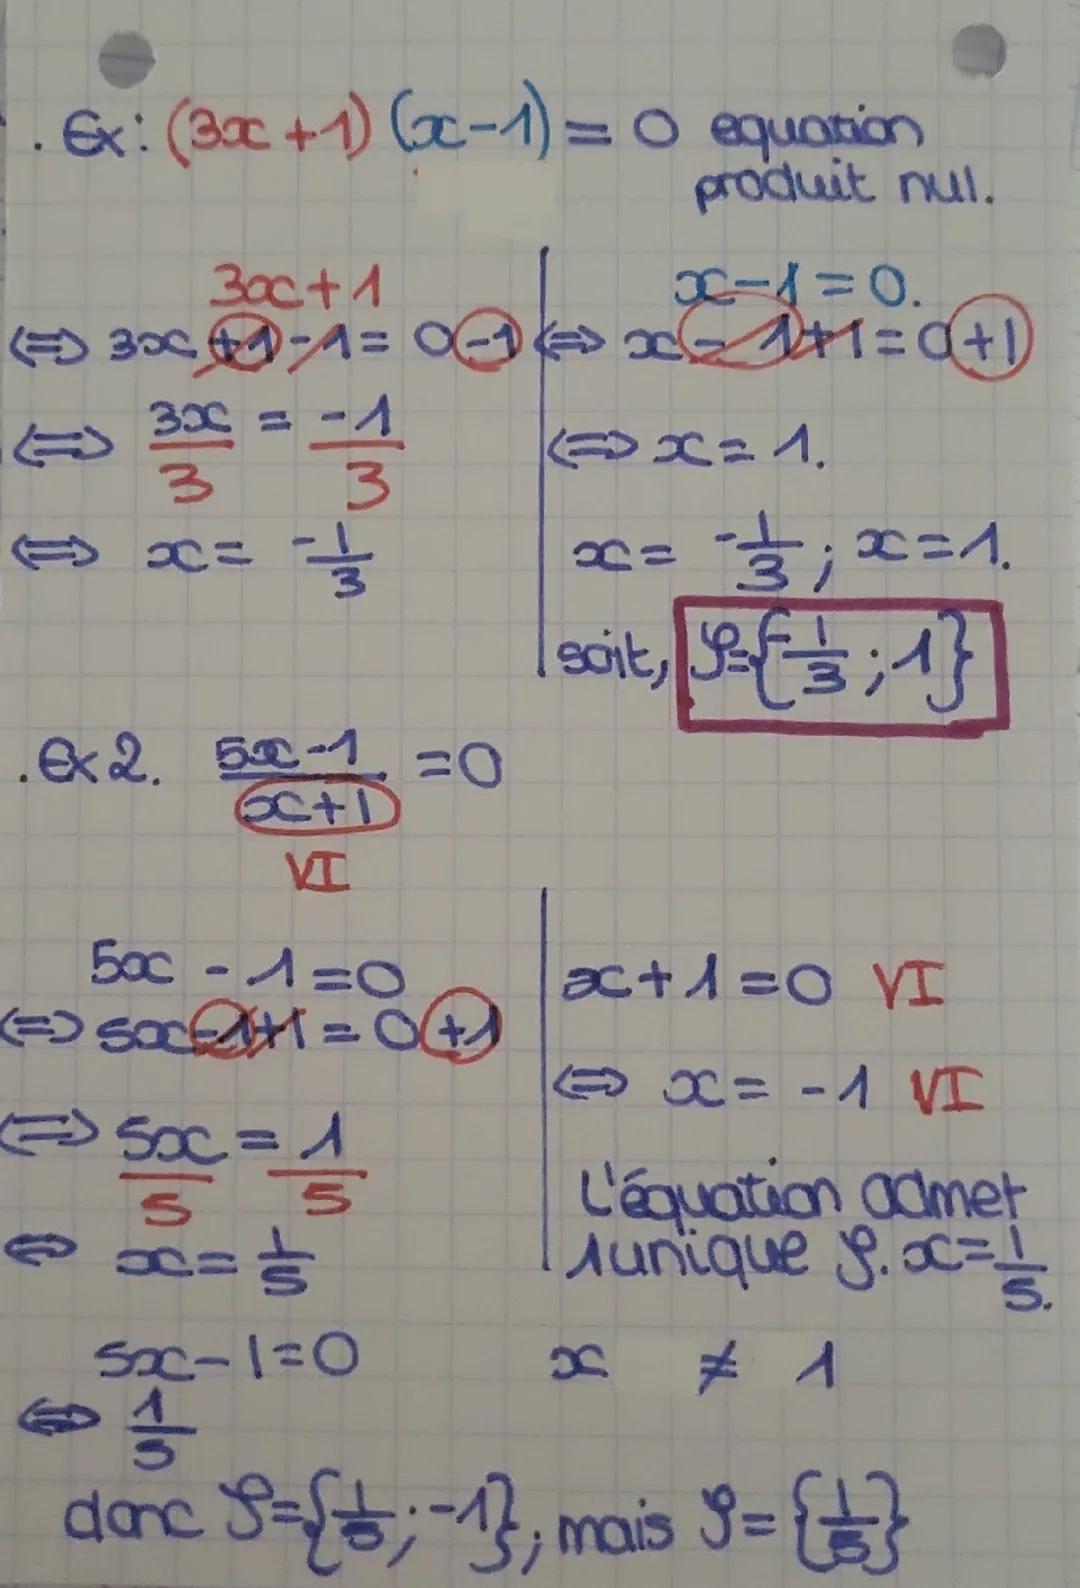 . Ex: (3x+1) (x-1) = 0 equation
produit nul.
3x+1
⇔ 3x+1-1 = 0-1
⇔ 3x/3 = -1/3
⇔ x = -1/3
x-1=0.
⇔ x-1+1=0+1
⇔ x=1.
x= -1/3 ; x=1.
soit, S={-1/3 ; 1}
. Ex 2. 5x-1/x+1 =0
VI
5x - 1=0
⇔ 5x-1+1 = 0+1
⇔ 5x/5 = 1/5
⇔ x= 1/5
x+1=0 VI
⇔ x= -1 VI
L'équation admet
1 unique S. x=1/5.
5x-1=0
⇔ 1/5
x ≠ 1
donc S={1/5 ; -1}, mais S= {1/5}